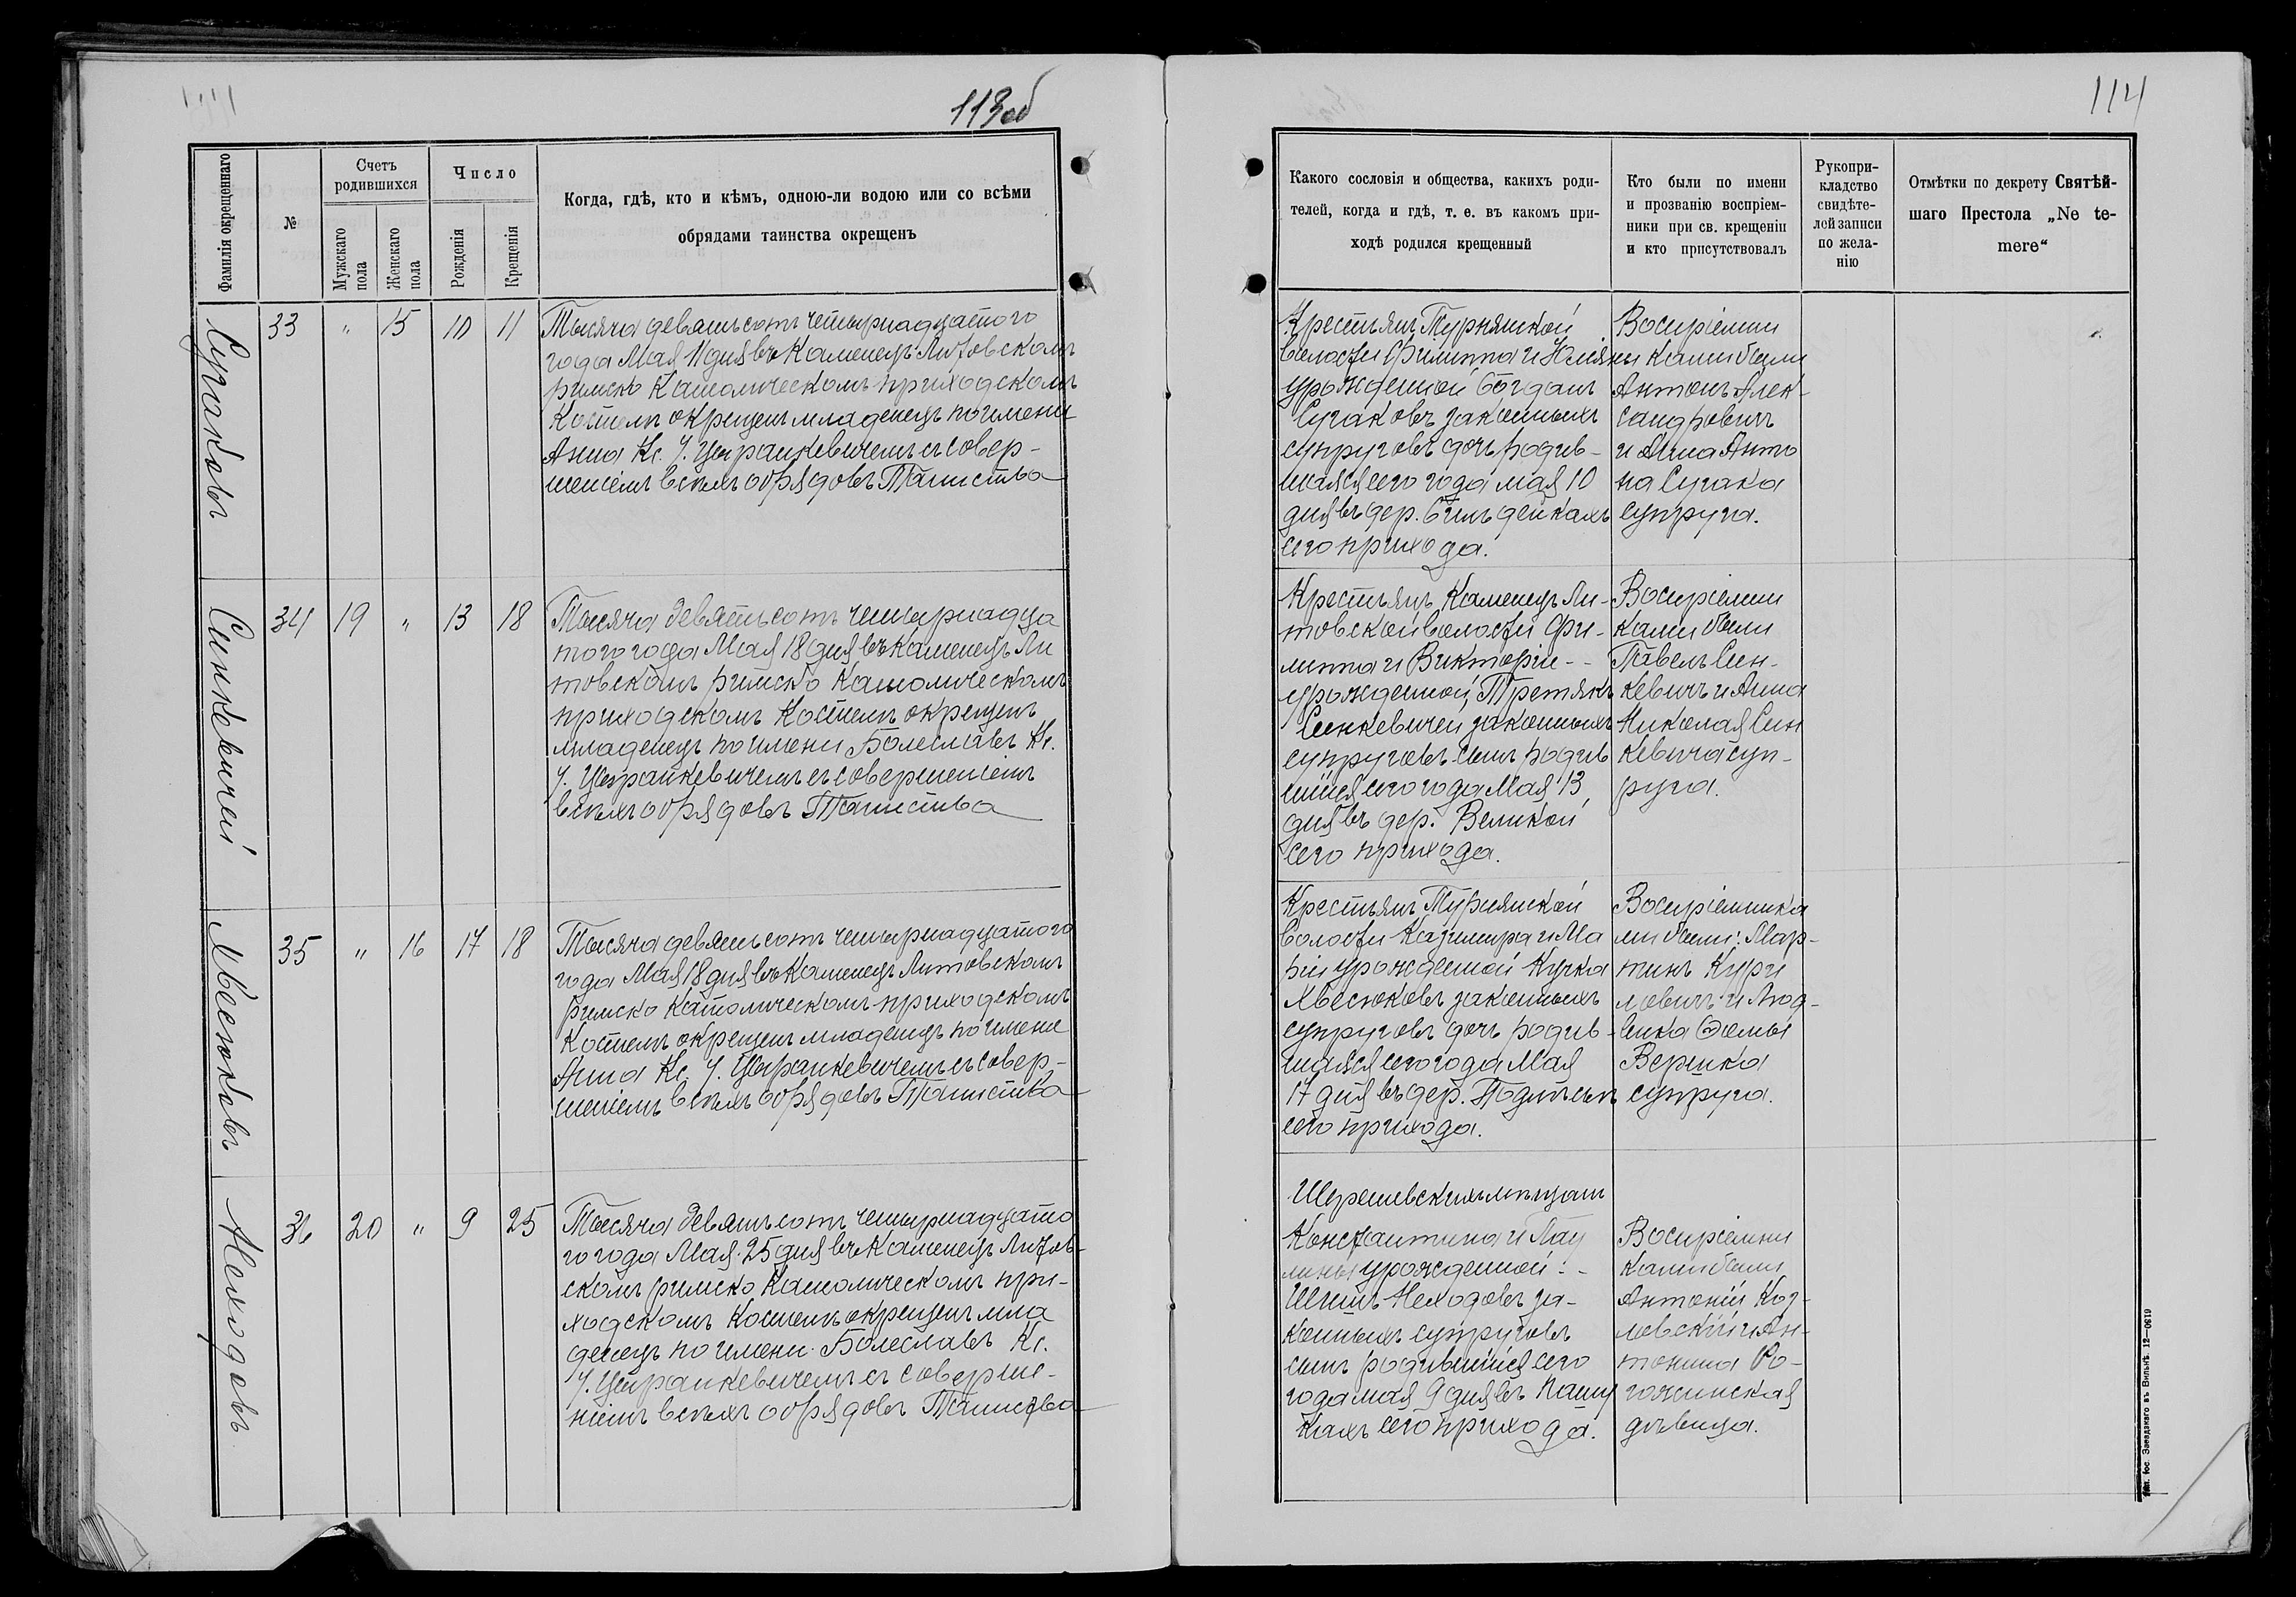 113об
Фамилія окрещеннаго
№
Счетъ
родившихся
Мужскаго
пола
Женскаго
пола
Число
Рожденія
Крещенія
Когда, гдѣ, кто и кѣмъ, одною-ли водою или со всѣми
обрядами таинства окрещенъ
Сугаковъ
33 „ 15 10 11
Тысяча девятьсотъ четырнадцатого
года Мая 11 дня въ Каменецъ Литовскомъ
римско Католическомъ приходскомъ
Костелѣ окрещенъ младенецъ по имени
Анна Кс. У. Цыранкевичемъ съ совер-
шеніемъ всѣхъ обрядовъ Таинства
Синкевичей
34 19 „ 13 18
Тысяча девятьсотъ четырнадца
того года Мая 18 дня въ Каменецъ Ли
товскомъ римско Католическомъ
приходскомъ Костелѣ окрещенъ
младенецъ по имени Болеславъ Кс.
У. Цыранкевичемъ съ совершеніемъ
всѣхъ обрядовъ Таинства
Хвесюковъ
35 „ 16 17 18
Тысяча девятьсотъ четырнадцатого
года Мая 18 дня въ Каменецъ Литовскомъ
римско Католическомъ приходскомъ
Костелѣ окрещенъ младенецъ по имени
Анна Кс. У. Цыранкевичемъ съ совер-
шеніемъ всѣхъ обрядовъ Таинства
Неходовъ
36 20 „ 9 25
Тысяча девятьсотъ четырнадцато
го года Мая 25 дня въ Каменецъ Литов-
скомъ римско Католическомъ при-
ходскомъ Костелѣ окрещенъ мла
денецъ по имени Болеславъ Кс.
У. Цыранкевичемъ съ соверше-
ніемъ всѣхъ обрядовъ Таинства
114
Какого сословія и общества, какихъ роди-
телей, когда и гдѣ, т. е. въ какомъ при-
ходѣ родился крещенный
Кто были по имени
и прозванію воспріем-
ники при св. крещеніи
и кто присутствовалъ
Рукопри-
кладство
свидѣте-
лей записи
по жела-
нію
Отмѣтки по декрету Святѣй-
шаго Престола „Ne te-
mere“
Крестьянъ Турнянской
волости Филиппа и Юліяны
урожденной Богданъ
Сугаковъ законныхъ
супруговъ дочь родив-
шаяся сего года мая 10
дня въ дер.
сего прихода.
Воспріемни
ками были
Антонъ Алек-
сандровичъ
и Анна Анто
на Сугака
супруга.
Крестьянъ Каменецъ Ли-
товской волости Фи-
липпа и Викторіи --
урожденной Третякъ
Синкевичей законныхъ
супруговъ сынъ родив
шійся сего года Мая 13
дня въ дер. Великой
сего прихода.
Воспріемни
ками были
Павелъ Син-
кевичъ и Анна
Николая Син
кевича суп-
руга.
Крестьянъ Турнянской
волости Казимира и Ма
ріи урожденной Кучка
Хвесюковъ законныхъ
супруговъ дочь родив-
шаяся сего года Мая
17 дня въ дер.
сего прихода.
Воспріемника
ми были: Мар-
тинъ Кури
ловичъ и Люд-
вика Фомы
Веренка
супруга.
Шерешевскихъ мѣщанъ
Константина и Пау
лины урожденной:-
Неходовъ за-
конныхъ супруговъ
сынъ родившійся сего
года мая 9 дня въ Пашу
кахъ сего прихода.
Воспріемни
ками были
Антоній Коз-
ловскій и Ан-
тонина Ро-
гожинская
дѣвица.
Тип. Іос. Завадзкаго въ Вильнѣ. 12—0619